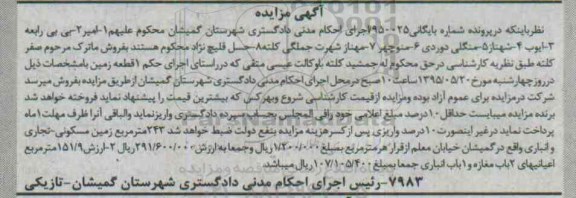 آگهی مزایده
نظربایـنکه درپرونده شماره بایگانی۹۵۰۰۲۵اجرای احکام مدنی دادگستری شهرستان گمیشان محکوم علیهم۱-امیر۲-بی بی رابعه
۳-ایوب ۴-شهناز ۵-منگلی دوردی ۶-منوچهر ۷-مهناز شهرت جملگی کلته۸-حسل قلیچ نژاد محکوم هستند بفروش ماترک مرحوم صفر
کلته طبق نظریه کارشناسی درحق محکوم له جمشید کلته باوکالت عیسی متقی که درراستای اجرای حکم ۱قطعه زمین بامشخصات ذیل
درروزچهارشنبه مورخ ۱۳۹۵/۰۵/۲۰ساعت۱۰صبح درمحل اجرای احکام مدنی دادگستری شهرستان گمیشان ازطریق مزایده بفروش میرسد
شرکت درمزایده برای عموم آزاد بوده ومزایده ازقیمت کارشناسی شروع وبهرکس که بیشترین قیمت را پیشنهاد نماید فروخته خواهد شد
برنده مزایده میبایست حداقل۱۰درصد مبلغ اعلامی خود رافی المجلس بحساب سپرده دادگستری واریزنماید والباقی آنرا ظرف مهلت۱ماه
پرداخت نماید درغیر اینصورت۱۰درصد واریزی پس ازکسرهزینه مزایده بنفع دولت ضبط خواهد شد ۲۴۳مترمربع زمین مسکونی-تجاری
و انباری واقع درگمیشان خیابان معلم ازقرار هرمترمربع بمبلغ ۱/۲۰۰/۰۰۰ریال وجمعا به ارزش ۲۹۱/۶۰۰/۰۰۰ریال ۲-ارزش۱۵۱/۹مترمربع
اعیانیهای ۲باب مغازه و۱باب انباری جمعا بمبلغ ۱۰۷/۱۰۵/۴۰۰ریال میباشد.
۷۹۸۳-رئیس اجرای احکام مدنی دادگستری شهرستان گمیشان-تازیکی